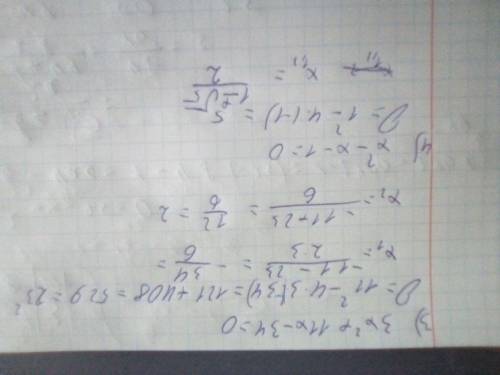 3) 3x²+11x-34=0
D=11²-4·3·(-34)=121+408=529=23²
x₁= (-11-23)/(2·3) = -34/6 =
x₂= (-11+23)/6 = 12/6 = 2
4) x²-x-1=0
D=1²-4·(-1)=5
x₁,₁= (1-√5)/2